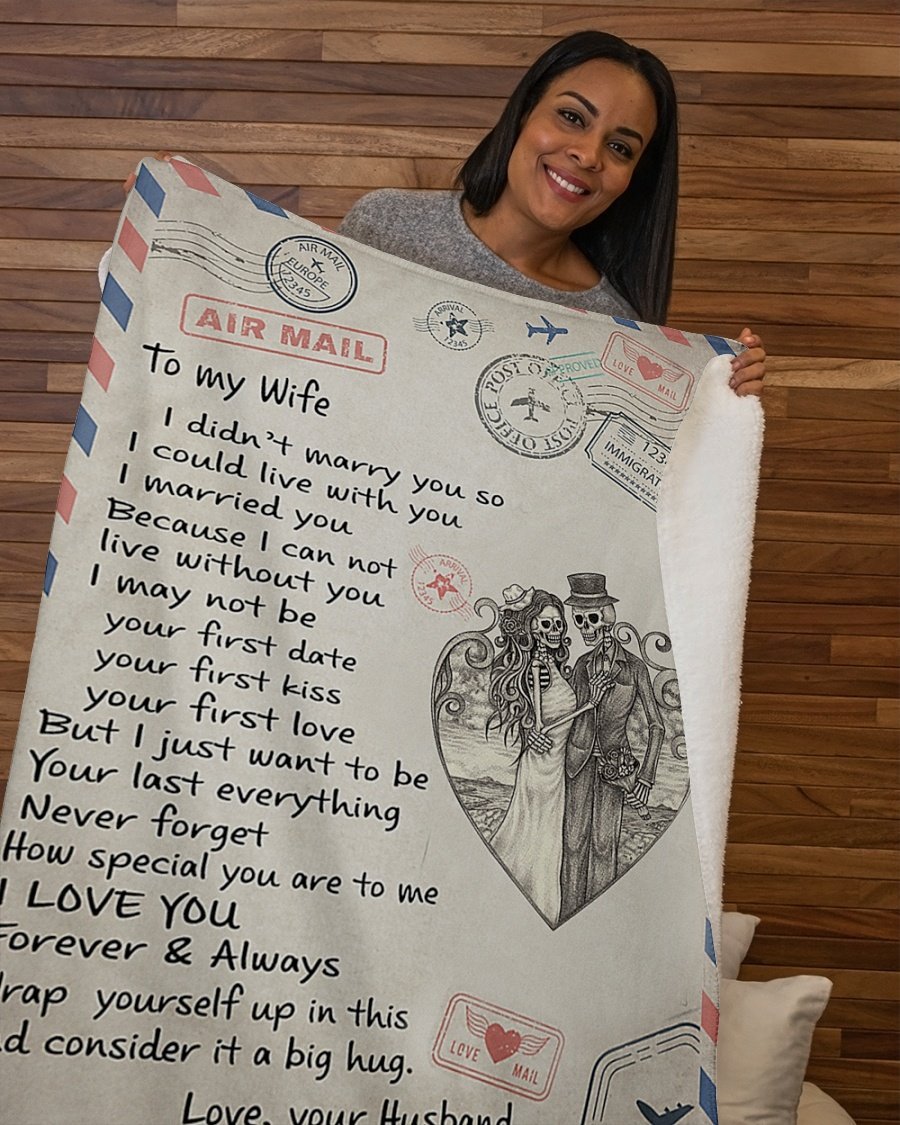 AIR MAIL
EUROPE
12345
AIR MAIL
ARRIVAL
12345
APPROVED
LOVE MAIL
POST OFFICE POST OFFICE
123
IMMIGRAT
To my Wife
I didn't marry you so
I could live with you
I married you
Because I can not
live without you
I may not be
your first date
your first kiss
your first love
But I just want to be
Your last everything
Never forget
How special you are to me
I LOVE YOU
Forever & Always
rap yourself up in this
d consider it a big hug.
Love, your Husband
ARRIVAL
12345
LOVE MAIL